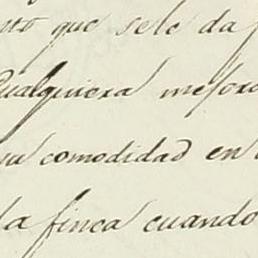 que se le da
Qualquiera mejora
su comodidad en
la finca cuando